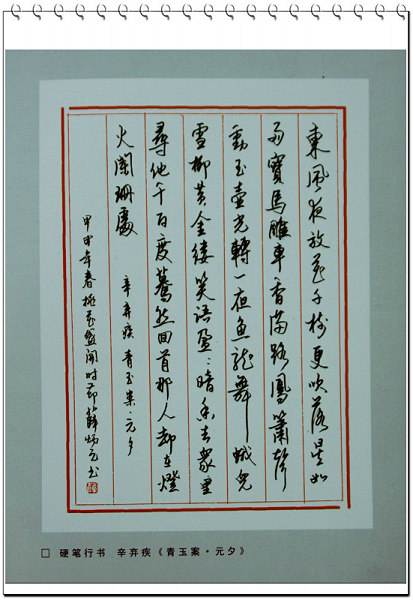 東風夜放花千樹更吹落星如
雨寶馬雕車香滿路鳳簫聲
動玉壺光轉一夜魚龍舞蛾兒
雪柳黃金縷笑語盈:暗香去衆里
尋他千百度驀然回首那人却在燈
火闌珊處
辛弃疾青玉案·元夕
甲申年春桃花盛開時節薛炳元书
硬笔行书 辛弃疾《青玉案·元夕》